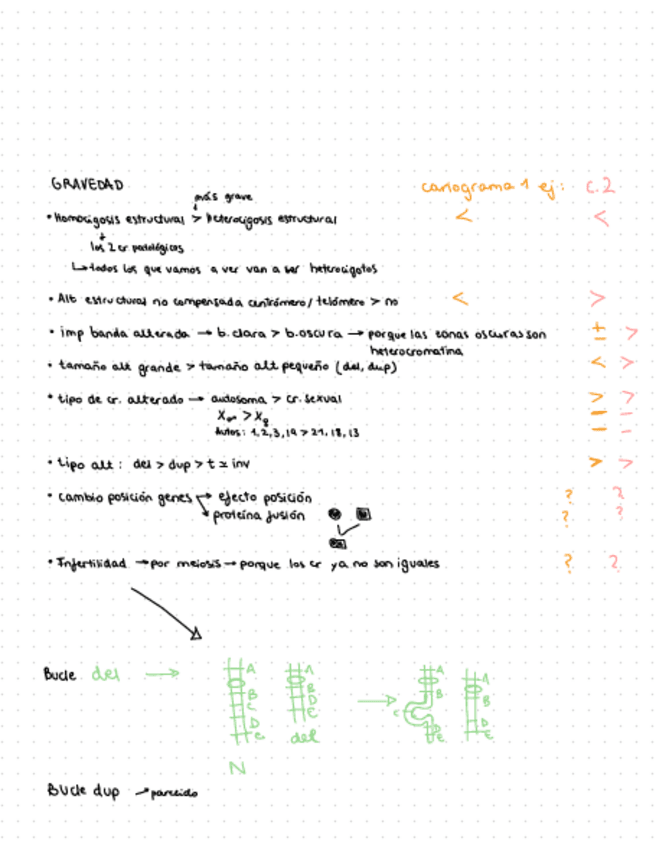 GRAVEDAD
cariograma 1 ej: c.2
más grave
• Homocigosis estructural > heterocigosis estructural < <
los 2 cr patológicos
↳ todos los que vamos a ver van a ser heterocigotos
• Alt estructural no compensada centrómero/telómero > no < >
• imp banda alterada → b.clara > b.oscura → porque las zonas oscuras son ± >
heterocromatina
• tamaño alt grande > tamaño alt pequeño (del, dup) < >
• tipo de cr. alterado → autosoma > cr. sexual > >
X♂ > X♀ − −
Autos: 1, 2, 3, 19 > 21, 18, 13 − −
• tipo alt: del > dup > t ≈ inv > >
• cambio posición genes → efecto posición ? ?
→ proteína fusión ? ?
• Infertilidad → por meiosis → porque los cr ya no son iguales ? ?
Bucle del →
A A → A A
B B B B
C D C D
D E D E
e e
N del
Bucle dup → parecido